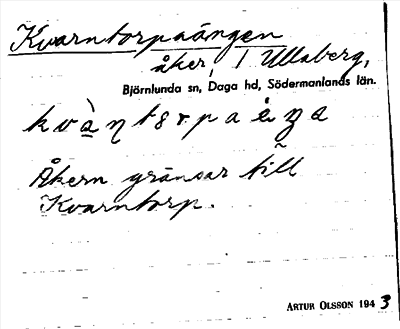 Kvarntorpaängen
åker, / Ullaberg,
Björnlunda sn, Daga hd, Södermanlands län.
Åkern gränsar till
Kvarntorp.
ARTUR OLSSON 1943